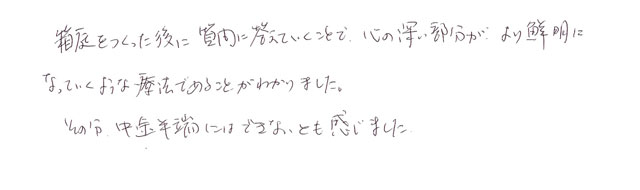 箱庭をつくった後に質問に答えていくことで、心の深い部分が より鮮明に
なっていくような療法であることがわかりました。
その分、中途半端にはできないとも感じました。